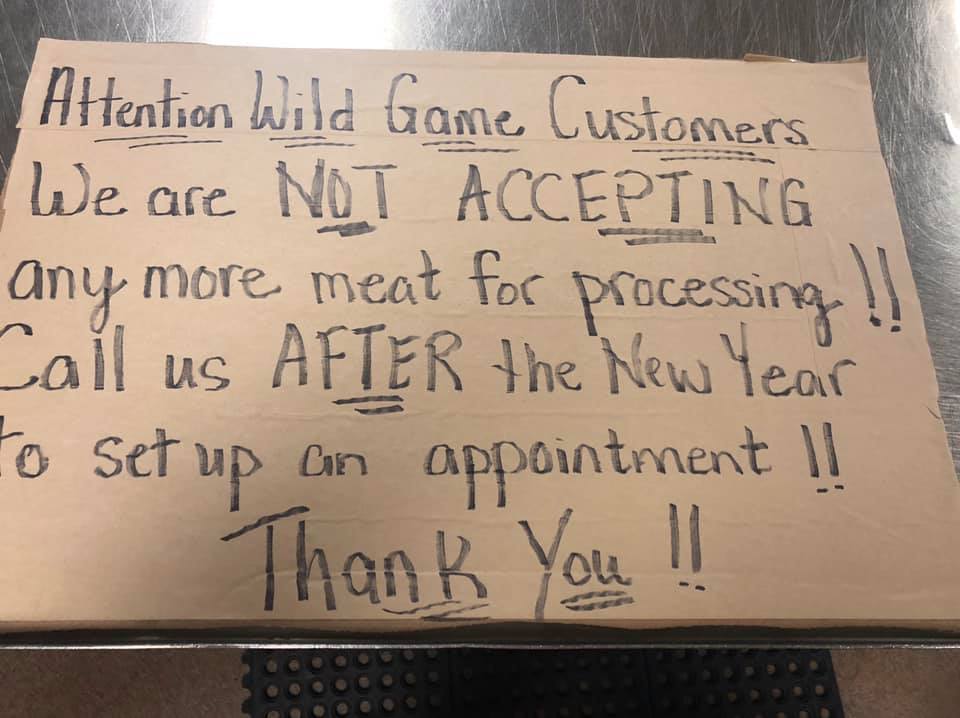 Attention Wild Game Customers
We are NOT ACCEPTING
any more meat for processing!!
Call us AFTER the New Year
to set up an appointment!!
Thank You!!